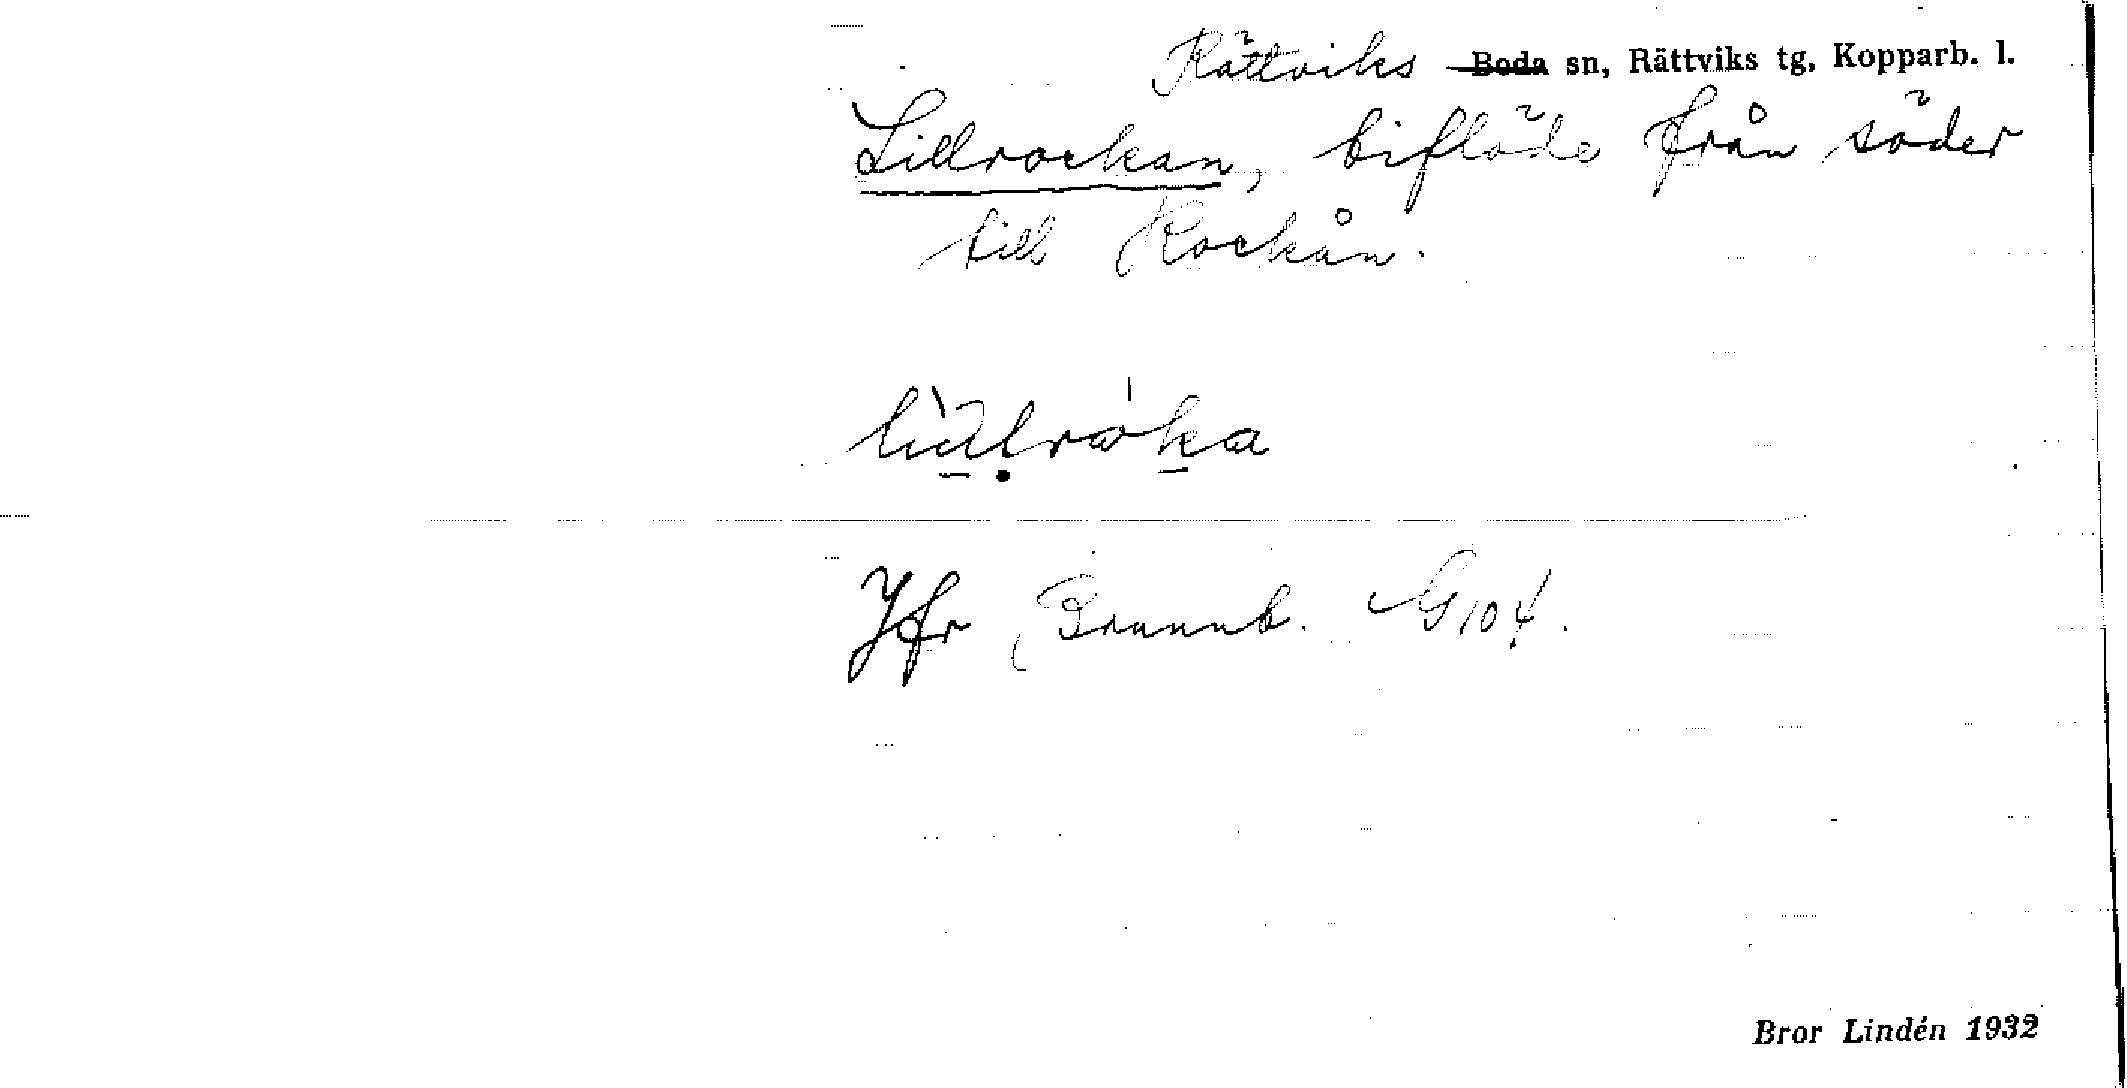 Rättviks ~~Boda~~ sn, Rättviks tg, Kopparb. l.
Lillrockan, biflöde från söder
till Rockån.
Jfr Brunnb. G104.
Bror Lindén 1932